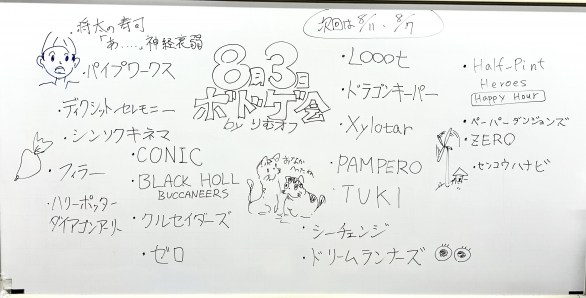 ・将太の寿司
「あ……」神経衰弱
・パイプワークス
・ディクシット・セレモニー
・シンソクキネマ
・フィラー
・ハリーポッター
ダイアゴンアリー
・CONIC
・BLACK HOLL
BUCCANEERS
・クルセイダーズ
・ゼロ
8月3日
ボドゲ会
by りむオフ
おなか
へったね
次回は8/11、8/17
・Looot
・ドラゴンキーパー
・Xylotar
・PAMPERO
・TUKI
・シーチェンジ
・ドリームランナーズ
・Half-Pint
Heroes
Happy Hour
・ペーパーダンジョンズ
・ZERO
・センコウハナビ